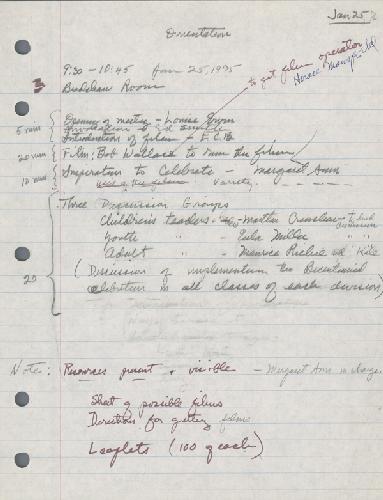 Jan 25
Orientation
to get film operator
9:30 - 10:45 Jan 25, 1975
Horace
3
Room
5 min
Opening of meeting - Louise
Introduction of film
20 min
Film: Bob Wallace to run the film
10 min
Inspiration to Celebrate - Margaret Ann
Variety
Three Discussion Groups
Children's leaders - Martha
Youth " - Miller
Adult " -
20
(Discussion of the Bicentennial
Celebration in all classes of each division)
Note: Resources present & visible - Margaret Ann in charge
Sheet of possible films
Directions for getting films
Leaflets (100 of each)